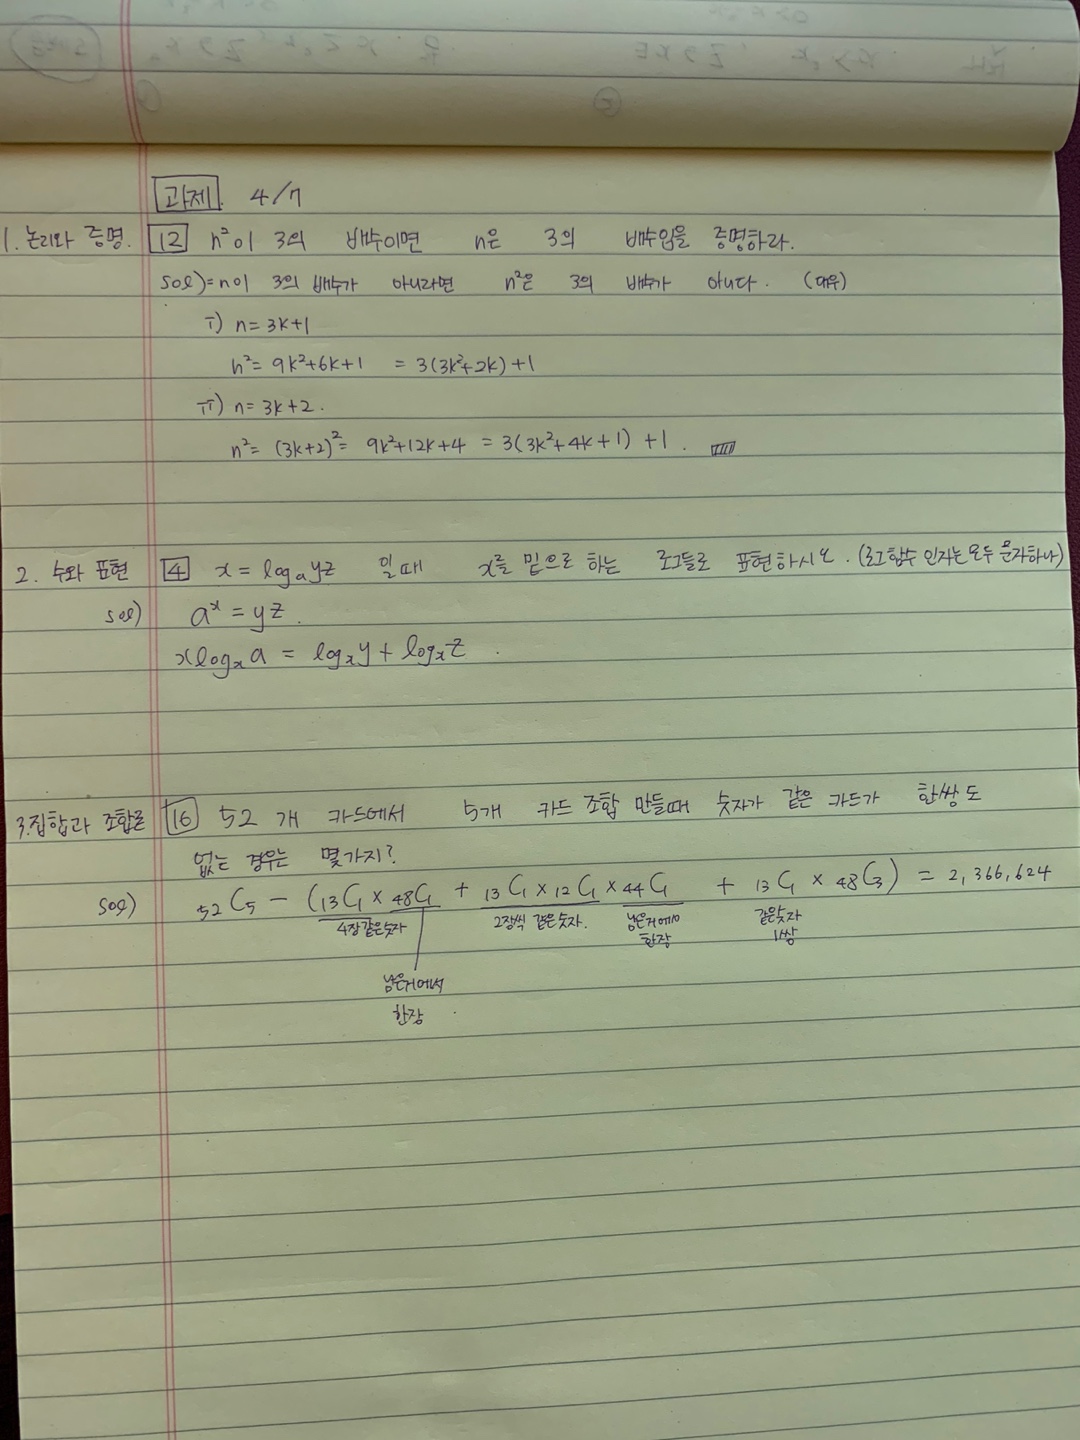 과제. 4/7
1. 논리와 증명. 12 n²이 3의 배수이면 n은 3의 배수임을 증명하라.
sol)=n이 3의 배수가 아니라면 n²은 3의 배수가 아니다. (대우)
i) n=3k+1
n²= 9k²+6k+1 = 3(3k²+2k)+1
ii) n=3k+2.
n²= (3k+2)²= 9k²+12k+4 = 3(3k²+4k+1)+1.
2. 수와 표현 4 x = logₐyz 일때 x를 밑으로 하는 로그들로 표현하시오. (로그함수 인자는 모두 문자하나)
sol) aˣ = yz.
xlogₓa = logₓy + logₓz.
3.집합과 조합론 16 52개 카드에서 5개 카드 조합 만들때 숫자가 같은 카드가 한쌍도
없는 경우는 몇가지?
sol) ₅₂C₅ - (₁₃C₁ × ₄₈C₁ + ₁₃C₁ × ₁₂C₁ × ₄₄C₁ + ₁₃C₁ × ₄₈C₃) = 2,366,624
4장같은숫자 2장씩 같은숫자. 남은거에서 같은숫자
한장 1쌍
남은거에서
한장.